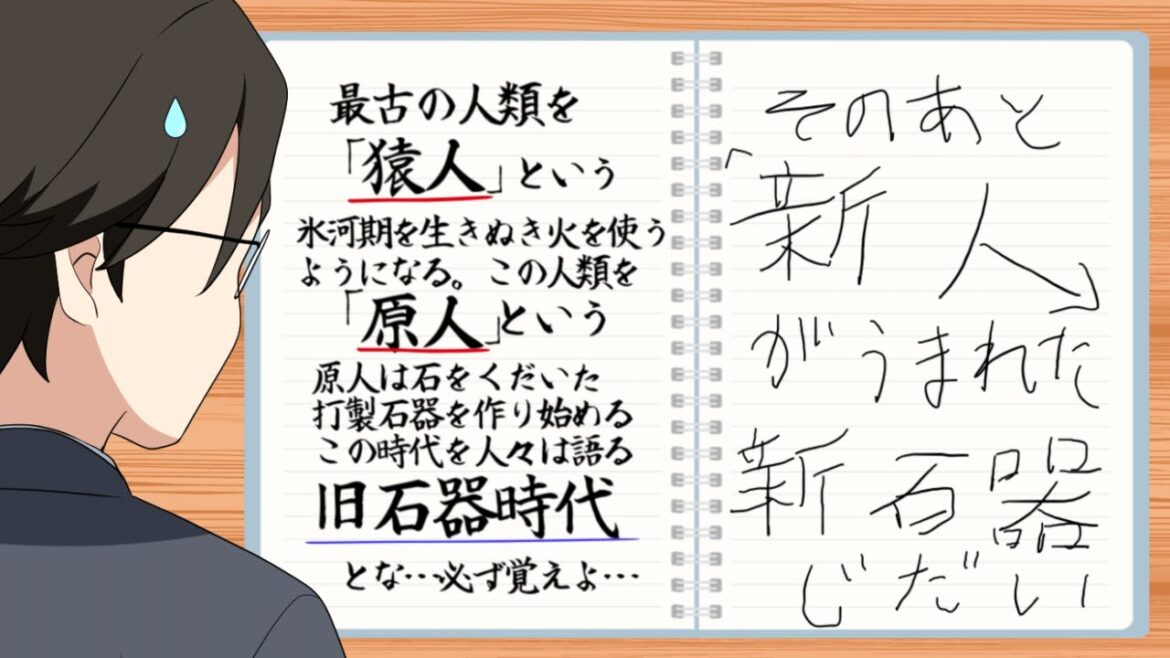 最古の人類を
「猿人」という
氷河期を生きぬき火を使う
ようになる。この人類を
「原人」という
原人は石をくだいた
打製石器を作り始める
この時代を人々は語る
旧石器時代
とな…必ず覚えよ…
そのあと
「新人」
がうまれた
新石器
じだい